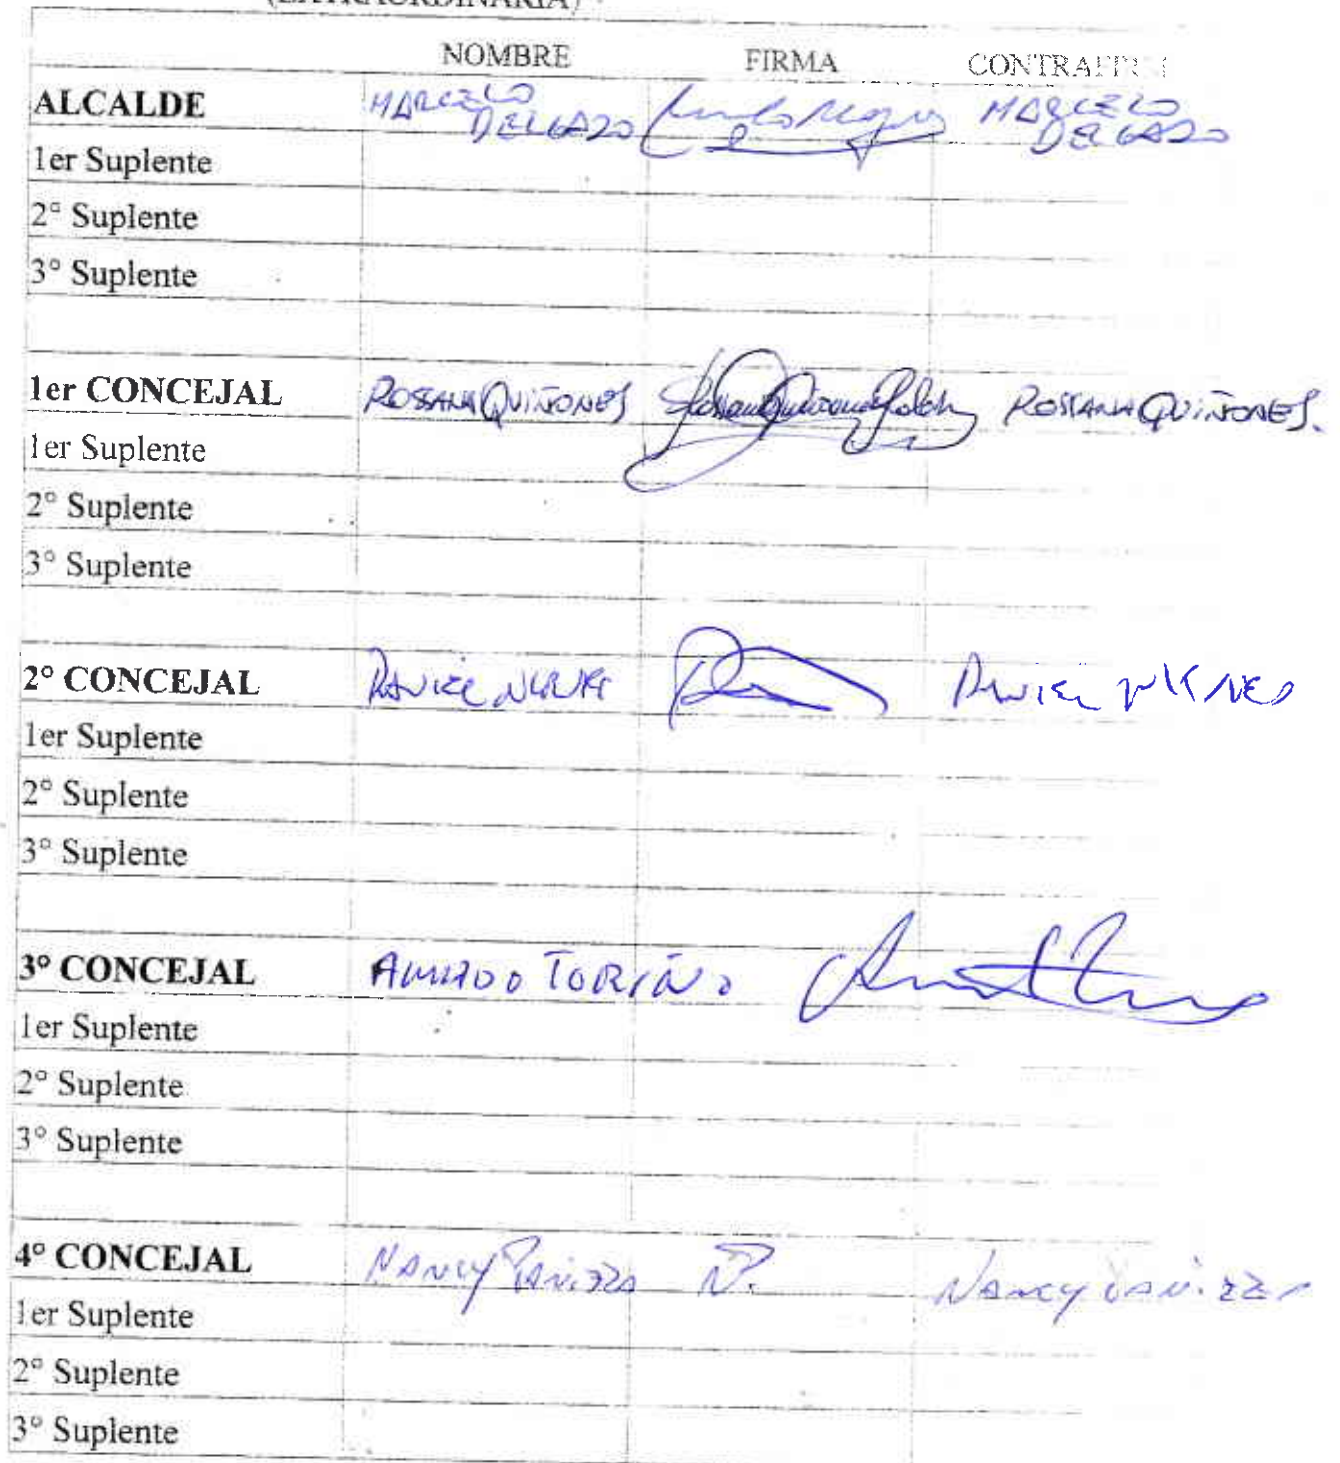 (EXTRAORDINARIA)
NOMBRE FIRMA CONTRAFIR
ALCALDE MARCELO DELGADO MARCELO DELGADO
1er Suplente
2° Suplente
3° Suplente
1er CONCEJAL ROSSANA QUIÑONES ROSSANA QUIÑONES.
1er Suplente
2° Suplente
3° Suplente
2° CONCEJAL DANIEL DANIEL
1er Suplente
2° Suplente
3° Suplente
3° CONCEJAL AMADO TORIÑO
1er Suplente
2° Suplente
3° Suplente
4° CONCEJAL NANCY PANIZZA N.P. NANCY PANIZZA
1er Suplente
2° Suplente
3° Suplente